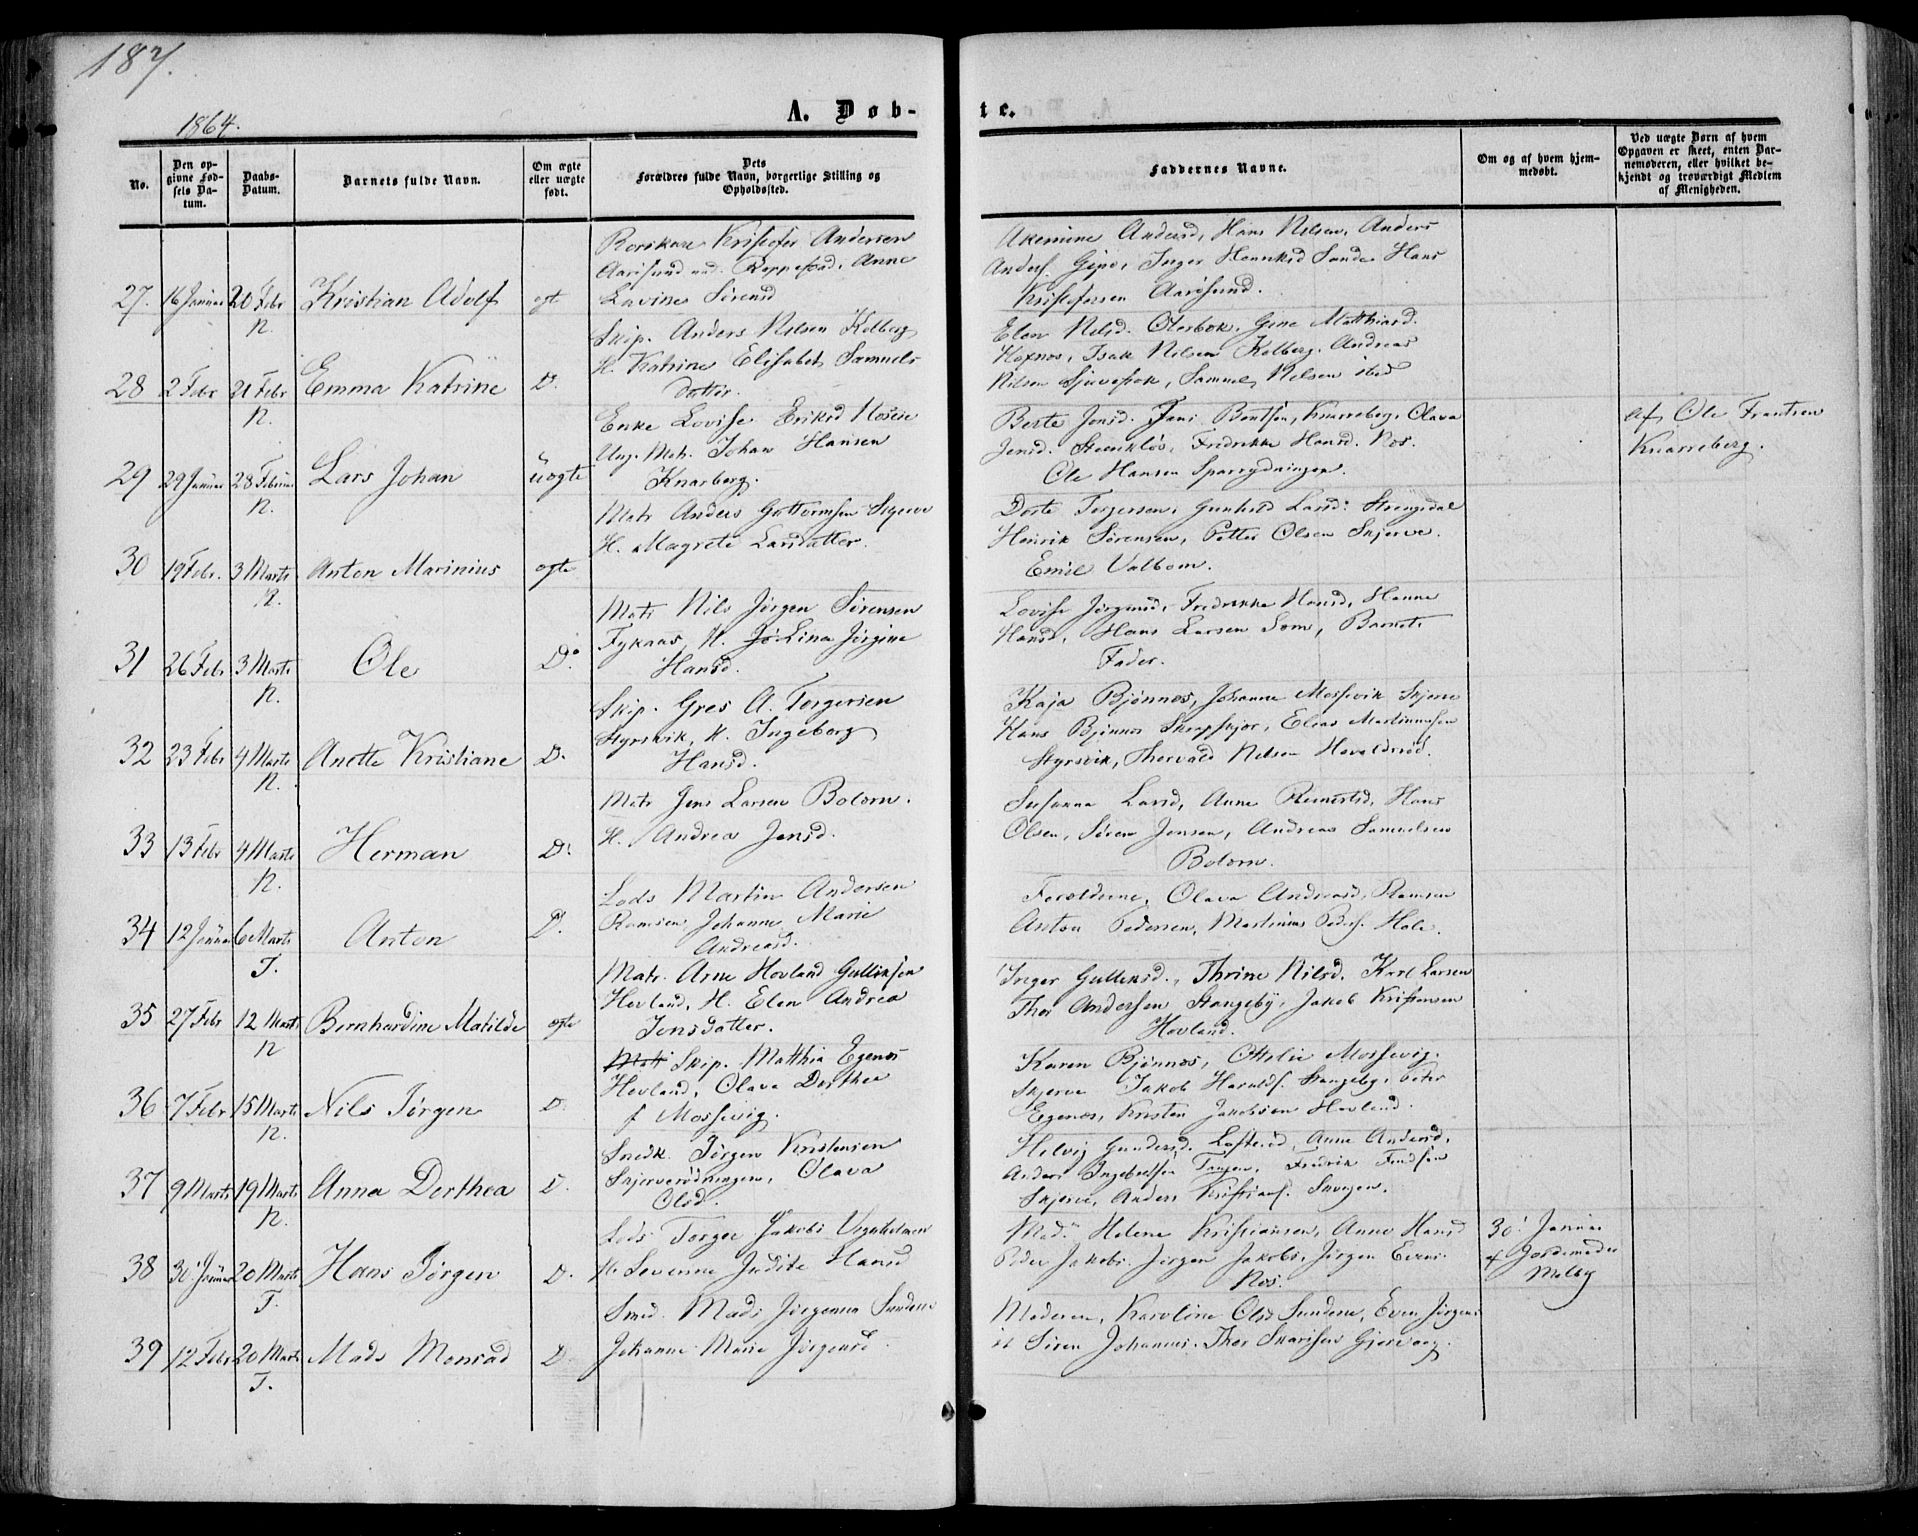 187.
1864.
A. Døb-
te.
No.
Den opgivne Fødsels Datum.
Daabs-Datum.
Barnets fulde Navn.
Om ægte eller uægte født.
Dets Forældres fulde Navn, borgerlige Stilling og Opholdssted.
Faddernes Navne.
Om og af hvem hjemmedøbt.
Ved uægte Børn af hvem Opgaven er skeet, enten Barnemoderen, eller hvilket bekjendt og troværdigt Medlem af Menigheden.
Kristofer Andersen
Aarøsund Anne
27. 16 Januar 20 Febr Kristian Adolf ægt Lavine Sørensd
N.
Anders Gipø, Inger Sande Hans
Kristofersen Aarøsund.
Skip. Anders Nilsen Kolberg
H. Katrine Elisabet Samuels
28 2 Febr 21 Febr Emma Katrine D. datter.
N.
Elen Nilsd. Oterbek, Gine Matthiasd.
Isak Nilsen Kolberg. Andreas
Nilsen Samuel Nilsen ibid
Enke Lovise Eriksd
Ung. Matr. Johan Hansen
29 29 Januar 28 Februar Lars Johan uægte Knarberg.
N.
Berte Jensd. Jens Bentsen, Knarreberg, Olava
Jensd. Fredrikke Hansd. Nøs.
Ole Hansen
Af Ole Frantsen
Knarreberg.
Matr Anders Guttormsen Skjerve
H. Magrete Larsdatter.
30 19 Febr. 3 Marts Anton Marinius ægte
N.
Dorte Torgersen, Gunhild Larsd:
Henrik Sørensen, Petter Olsen Skjerve.
Emil Valbom.
Matr Nils Jørgen Sørensen
H. Lina Jørgine
31 26 Febr 3 Marts Ole Do Hansd.
N.
Lovise Jørgensd, Fredrikke Hansd, Hanna
Hansd, Hans Larsen Søm, Barnets
Fader.
Skip. Gres A. Torgersen
Styrsvik, H. Ingeborg
32 23 Febr 4 Marts Anette Kristiane D. Hansd.
N.
Kaja Bjønnes, Johanne Mossevik Skjerve
Hans Bjønnes Elias Martinussen
Styrsvik, Thorvald Nilsen
Matr Jens Larsen Bolærn.
33 13 Febr 4 Marts Herman D. H. Andrea Jensd.
N.
Susanna Larsd, Anne Hans
Olsen, Søren Jensen, Andreas Samuelsen
Bolærn.
Lods Martin Andersen
Ramsen Johanne Marie
34 12 Januar 6 Marts Anton D. Andreasd.
T.
Forældrene, Olava Andreasd, Ramsen
Anton Pedersen, Martinius Peders. Hole.
Matr. Arne Hovland Gulliksen
Hovland, H. Elen Andrea
35 27 Febr 12 Marts Bernhardine Matilde ægte Jensdatter.
N
Inger Gulliksd., Thrine Nilsd. Karl Larsen
Thor Andersen Stangeby, Jakob Kristensen
Hovland.
Matr Skip. Matthia Egenes
Hovland, Olava Dorthea
36 7 Febr 15 Marts Nils Jørgen D. f Mossevig
N.
Karen Bjønnes, Ottilie Mossevig.
Skjerve Jakob Haralds. Stangeby, Peter
Egenes, Kristen Jakobsen Hovland.
Snedk. Jørgen Kristensen
Skjerverødningen, Olava
37 9 Marts 19 Marts Anna Dorthea D. Olsd.
N.
Helvig Gundersd. Anne Andersd,
Anders Ingebretsen Tangen, Fredrik
Skjerve, Anders Kristians. Skogen.
Lods Torger Jakobs
38 30 Januar 20 Marts Hans Jørgen D. H. Severine Judite Hansd
T.
Mad: Helene Kristiansen, Anne Hansd
Peder Jakobs. Jørgen Jakobs, Jørgen Evens.
Nøs.
30 Januar
af Jordemoder
Melby
Smed. Mads Jørgensen Sundene
39 12 Febr 20 Marts Mads Monsad D. Johanne Marie Jørgensd
T.
Moderen, Karoline Olsd Sundene, Even Jørgens
Søren Johannes. Thor